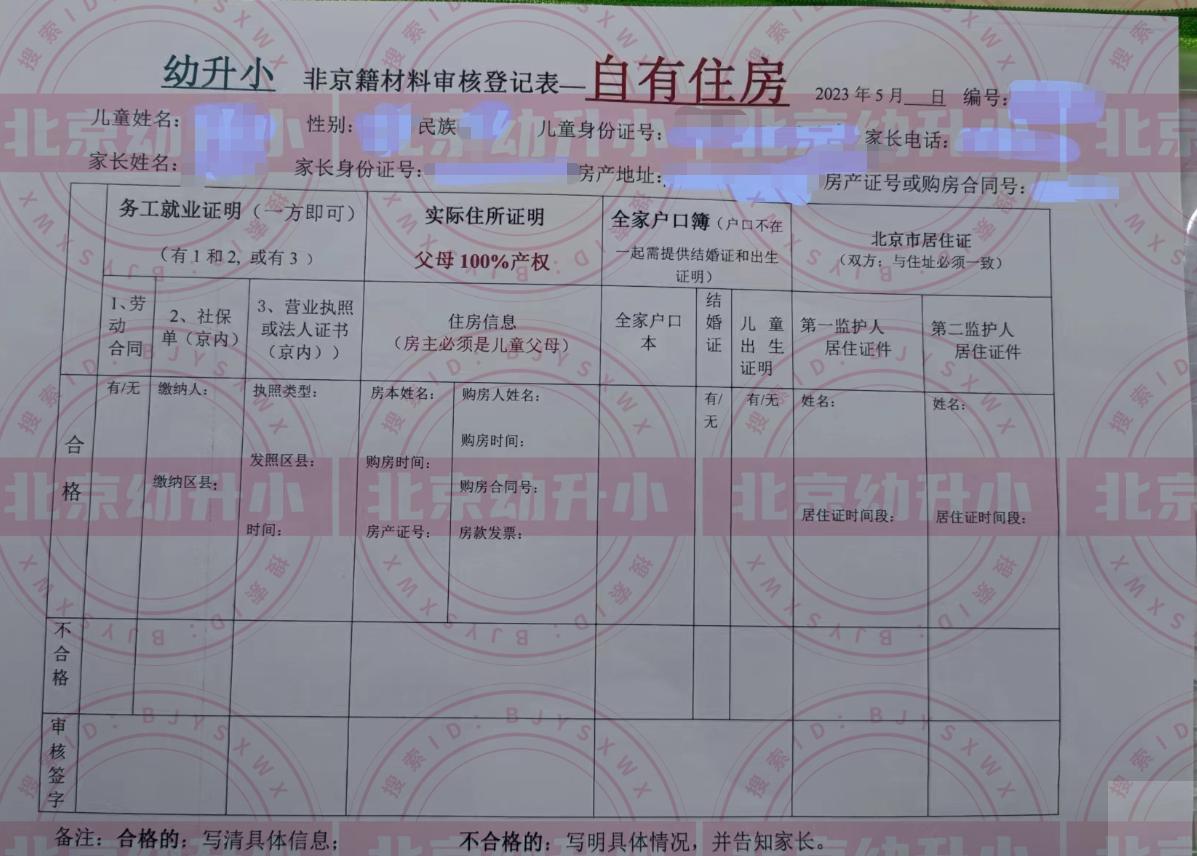 幼升小 非京籍材料审核登记表—自有住房 2023年5月__日 编号：
儿童姓名： 性别： 民族 儿童身份证号： 家长电话：
家长姓名： 家长身份证号： 房产地址： 房产证号或购房合同号：
务工就业证明（一方即可）
（有1和2, 或有3 ）
实际住所证明
父母100%产权
全家户口簿（户口不在
一起需提供结婚证和出生
证明）
北京市居住证
（双方；与住址必须一致）
1、劳
动
合同
2、社保
单（京内）
3、营业执照
或法人证书
（京内））
住房信息
（房主必须是儿童父母）
全家户口
本
结
婚
证
儿 童
出 生
证明
第一监护人
居住证件
第二监护人
居住证件
合
格
有/无
缴纳人：
缴纳区县：
执照类型：
发照区县：
时间：
房本姓名：
购房时间：
房产证号：
购房人姓名：
购房时间：
购房合同号：
房款发票：
有/
无
有/无
姓名：
居住证时间段：
姓名：
居住证时间段：
不
合
格
审
核
签
字
备注：合格的：写清具体信息； 不合格的：写明具体情况，并告知家长。
北京幼升小
搜索ID：BJYSXWX